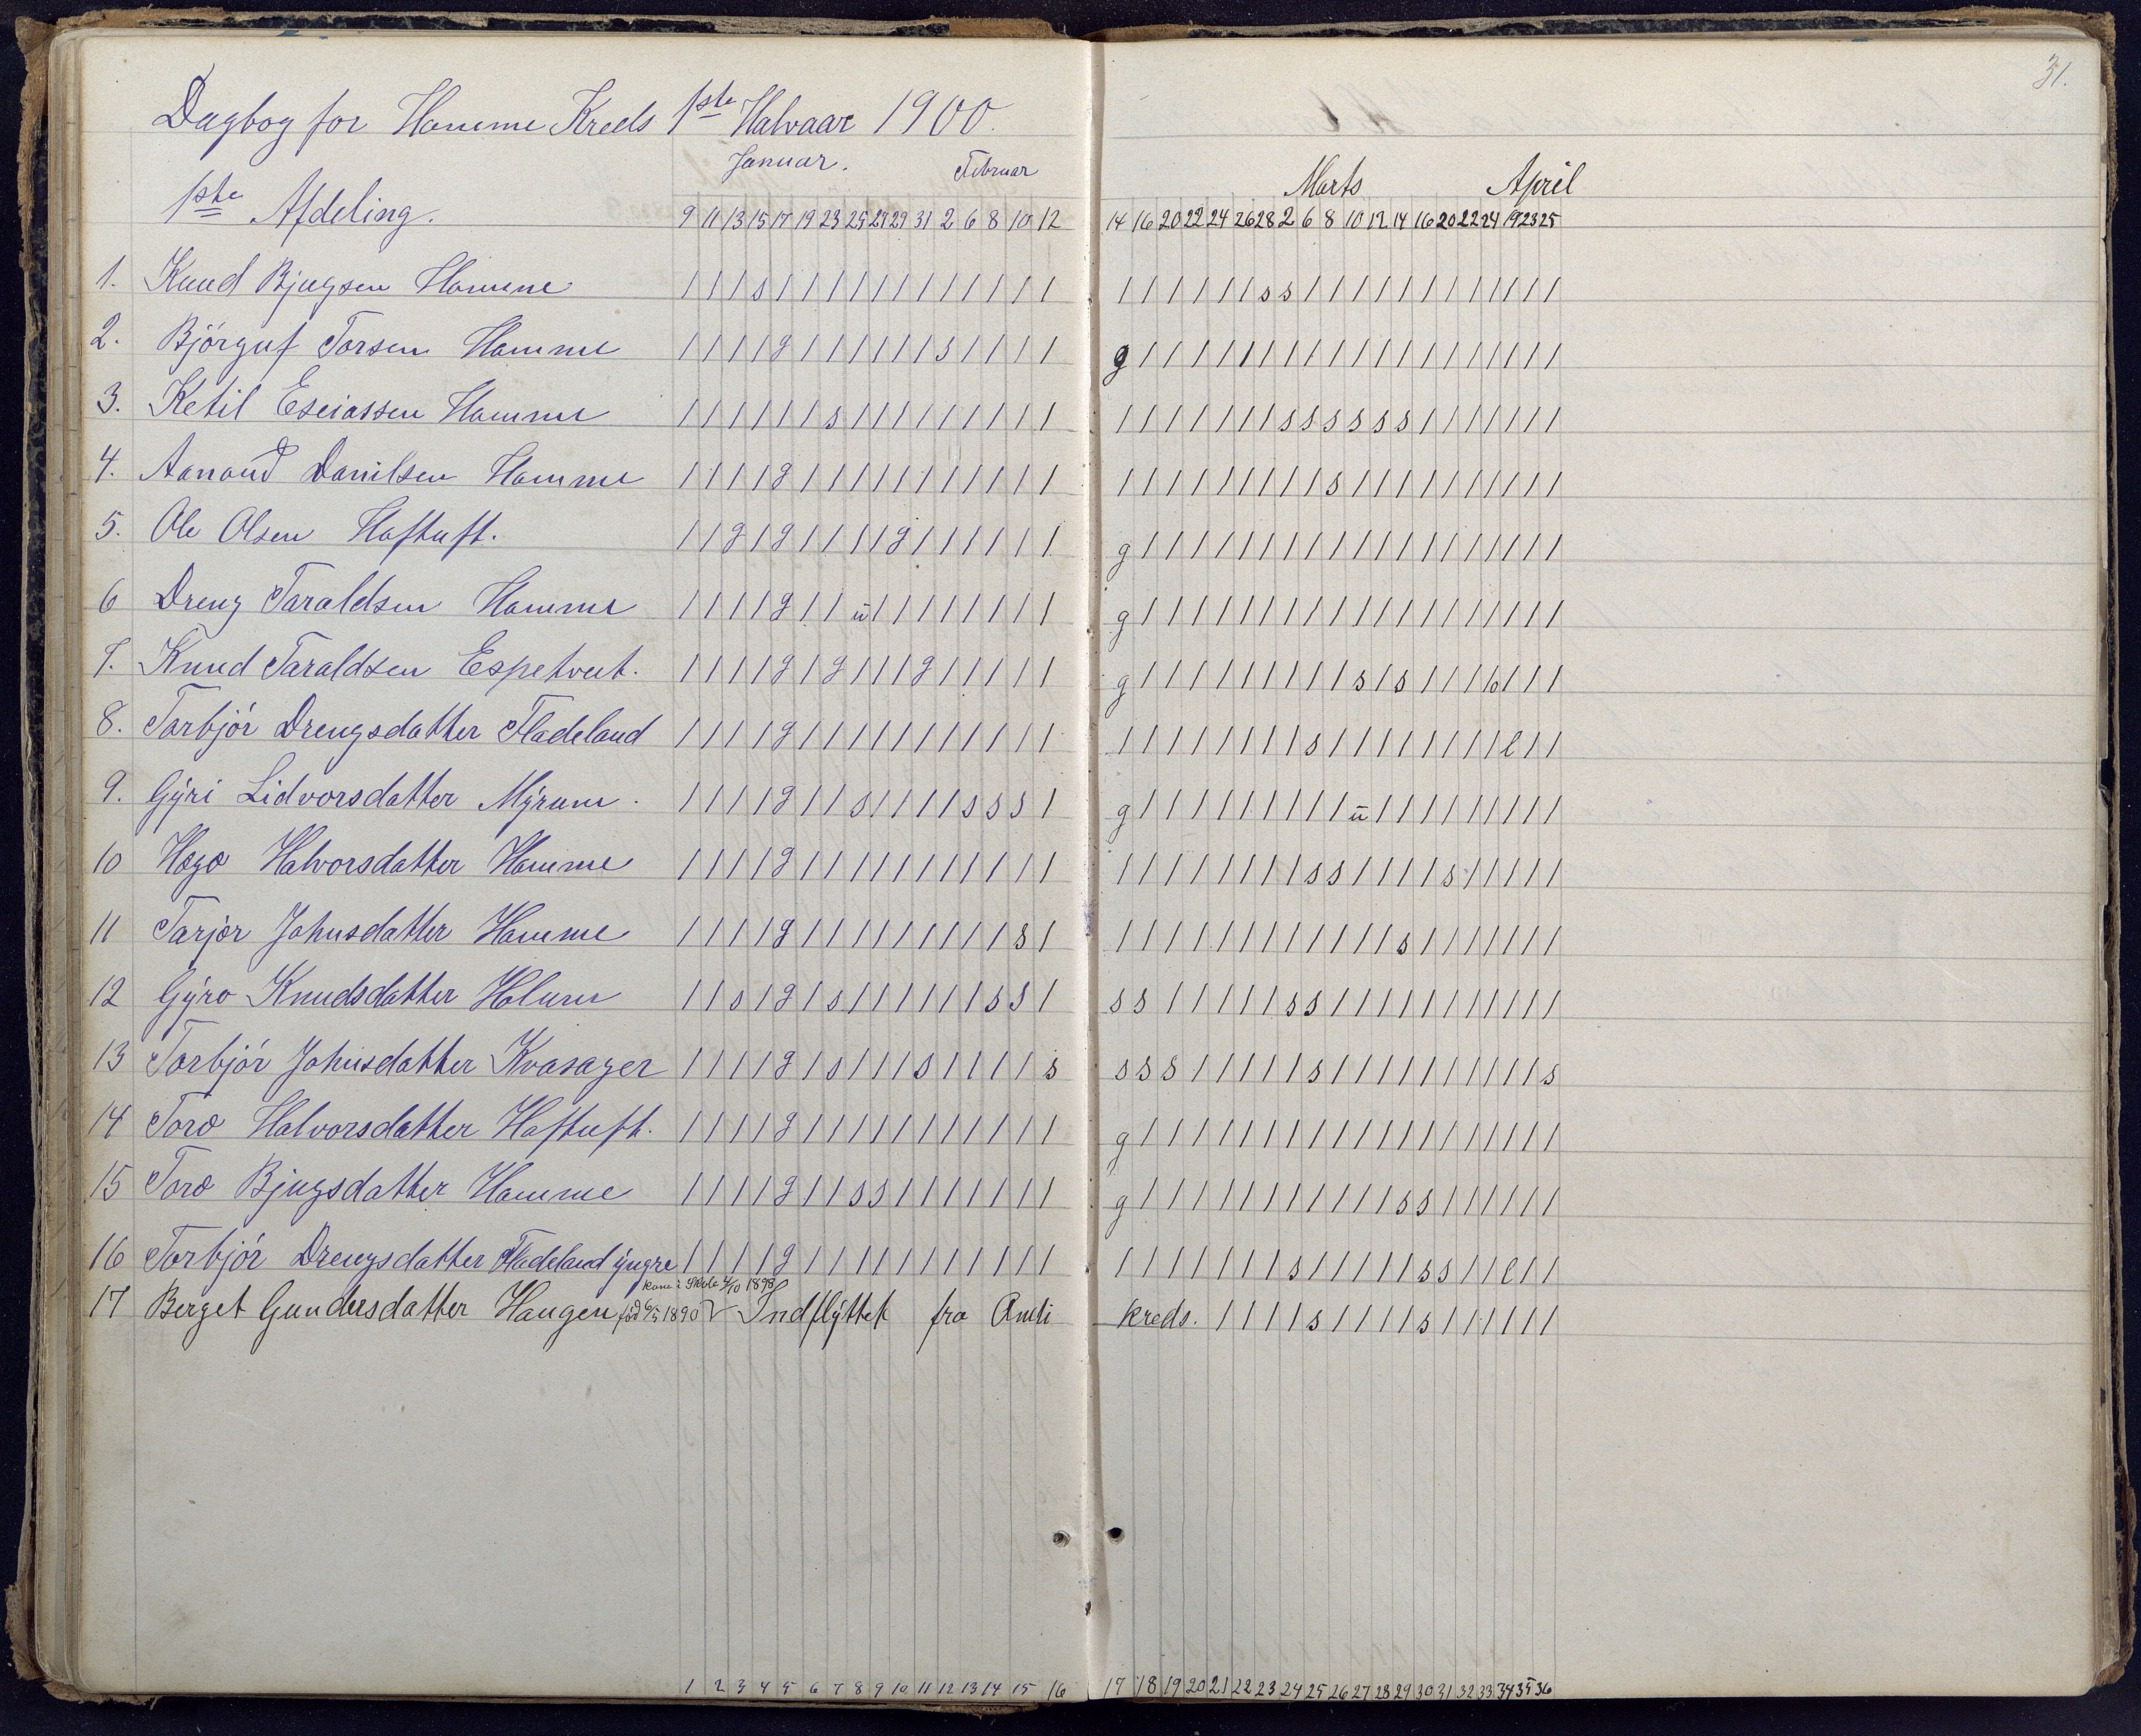 31.
Dagbog for Homme Kreds 1ste Halvaar 1900.
Januar. Februar Marts April
1ste Afdeling.
9 11 13 15 17 19 23 25 27 29 31 2 6 8 10 12 14 16 20 22 24 26 28 2 6 8 10 12 14 16 20 22 24 19 23 25
1. Knud Bjugsen Homme / / / s / / / / / / / / / / / / / / / / / / s s / / / / / / / / / / / /
2. Björguf Torsen Homme / / / / g / / / / / / s / / / / g / / / / / / / / / / / / / / / / / / /
3. Ketil Eseiassen Homme / / / / / / s / / / / / / / / / / / / / / / / s s s s s s / / / / / / /
4. Aanond Danilsen Homme / / / / g / / / / / / / / / / / / / / / / / / / / s / / / / / / / / / /
5. Ole Olsen Haftuft. / / g / g / / / / g / / / / / / g / / / / / / / / / / / / / / / / / / /
6 Dreng Taraldsen Homme / / / / g / / u / / / / / / / / g / / / / / / / / / / / / / / / / / / /
7. Knud Taraldsen Espetveit. / / / / g / g / / / g / / / / / g / / / / / / / / / s / s / / / b / / /
8. Torbjör Drengsdatter Fladeland / / / / g / / / / / / / / / / / / / / / / / / / s / / / / / / / / l / /
9. Gÿri Lidvorsdatter Mÿrum. / / / / g / / s / / / / s s s / g / / / / / / / / / u / / / / / / / / /
10 Hægo Halvorsdatter Homme / / / / g / / / / / / / / / / / / / / / / / / / s s / / / / s / / / / /
11 Tarjer Johnsdatter Homme / / / / g / / / / / / / / / s / / / / / / / / / / / / / s / / / / / / /
12 Gÿro Knudsdatter Holum / / s / g / s / / / / / / s s / s s / / / / / s s / / / / / / / / / / /
13 Torbjör Johnsdatter Kvasager / / / / g / s / / / s / / / / s s s s / / / / / s / / / / / / / / / / s
14 Toro Halvorsdatter Haftuft. / / / / g / / / / / / / / / / / g / / / / / / / / / / / / / / / / / / /
15 Toro Bjugsdatter Homme / / / / g / / s s / / / / / / / g / / / / / / / / / / / s s / / / / / /
16 Torbjör Drengsdatter Fladeland ÿngre / / / / g / / / / / / / / / / / / / / / / / / s / / / / / s s / / l / /
kom i Skole 4/10 1898
17 Berget Gundersdatter Haugen född 6/5 1890 Indflÿttet fra Amli kreds. / / / / s / / / / s / / / / / /
1 2 3 4 5 6 7 8 9 10 11 12 13 14 15 16 17 18 19 20 21 22 23 24 25 26 27 28 29 30 31 32 33 34 35 36